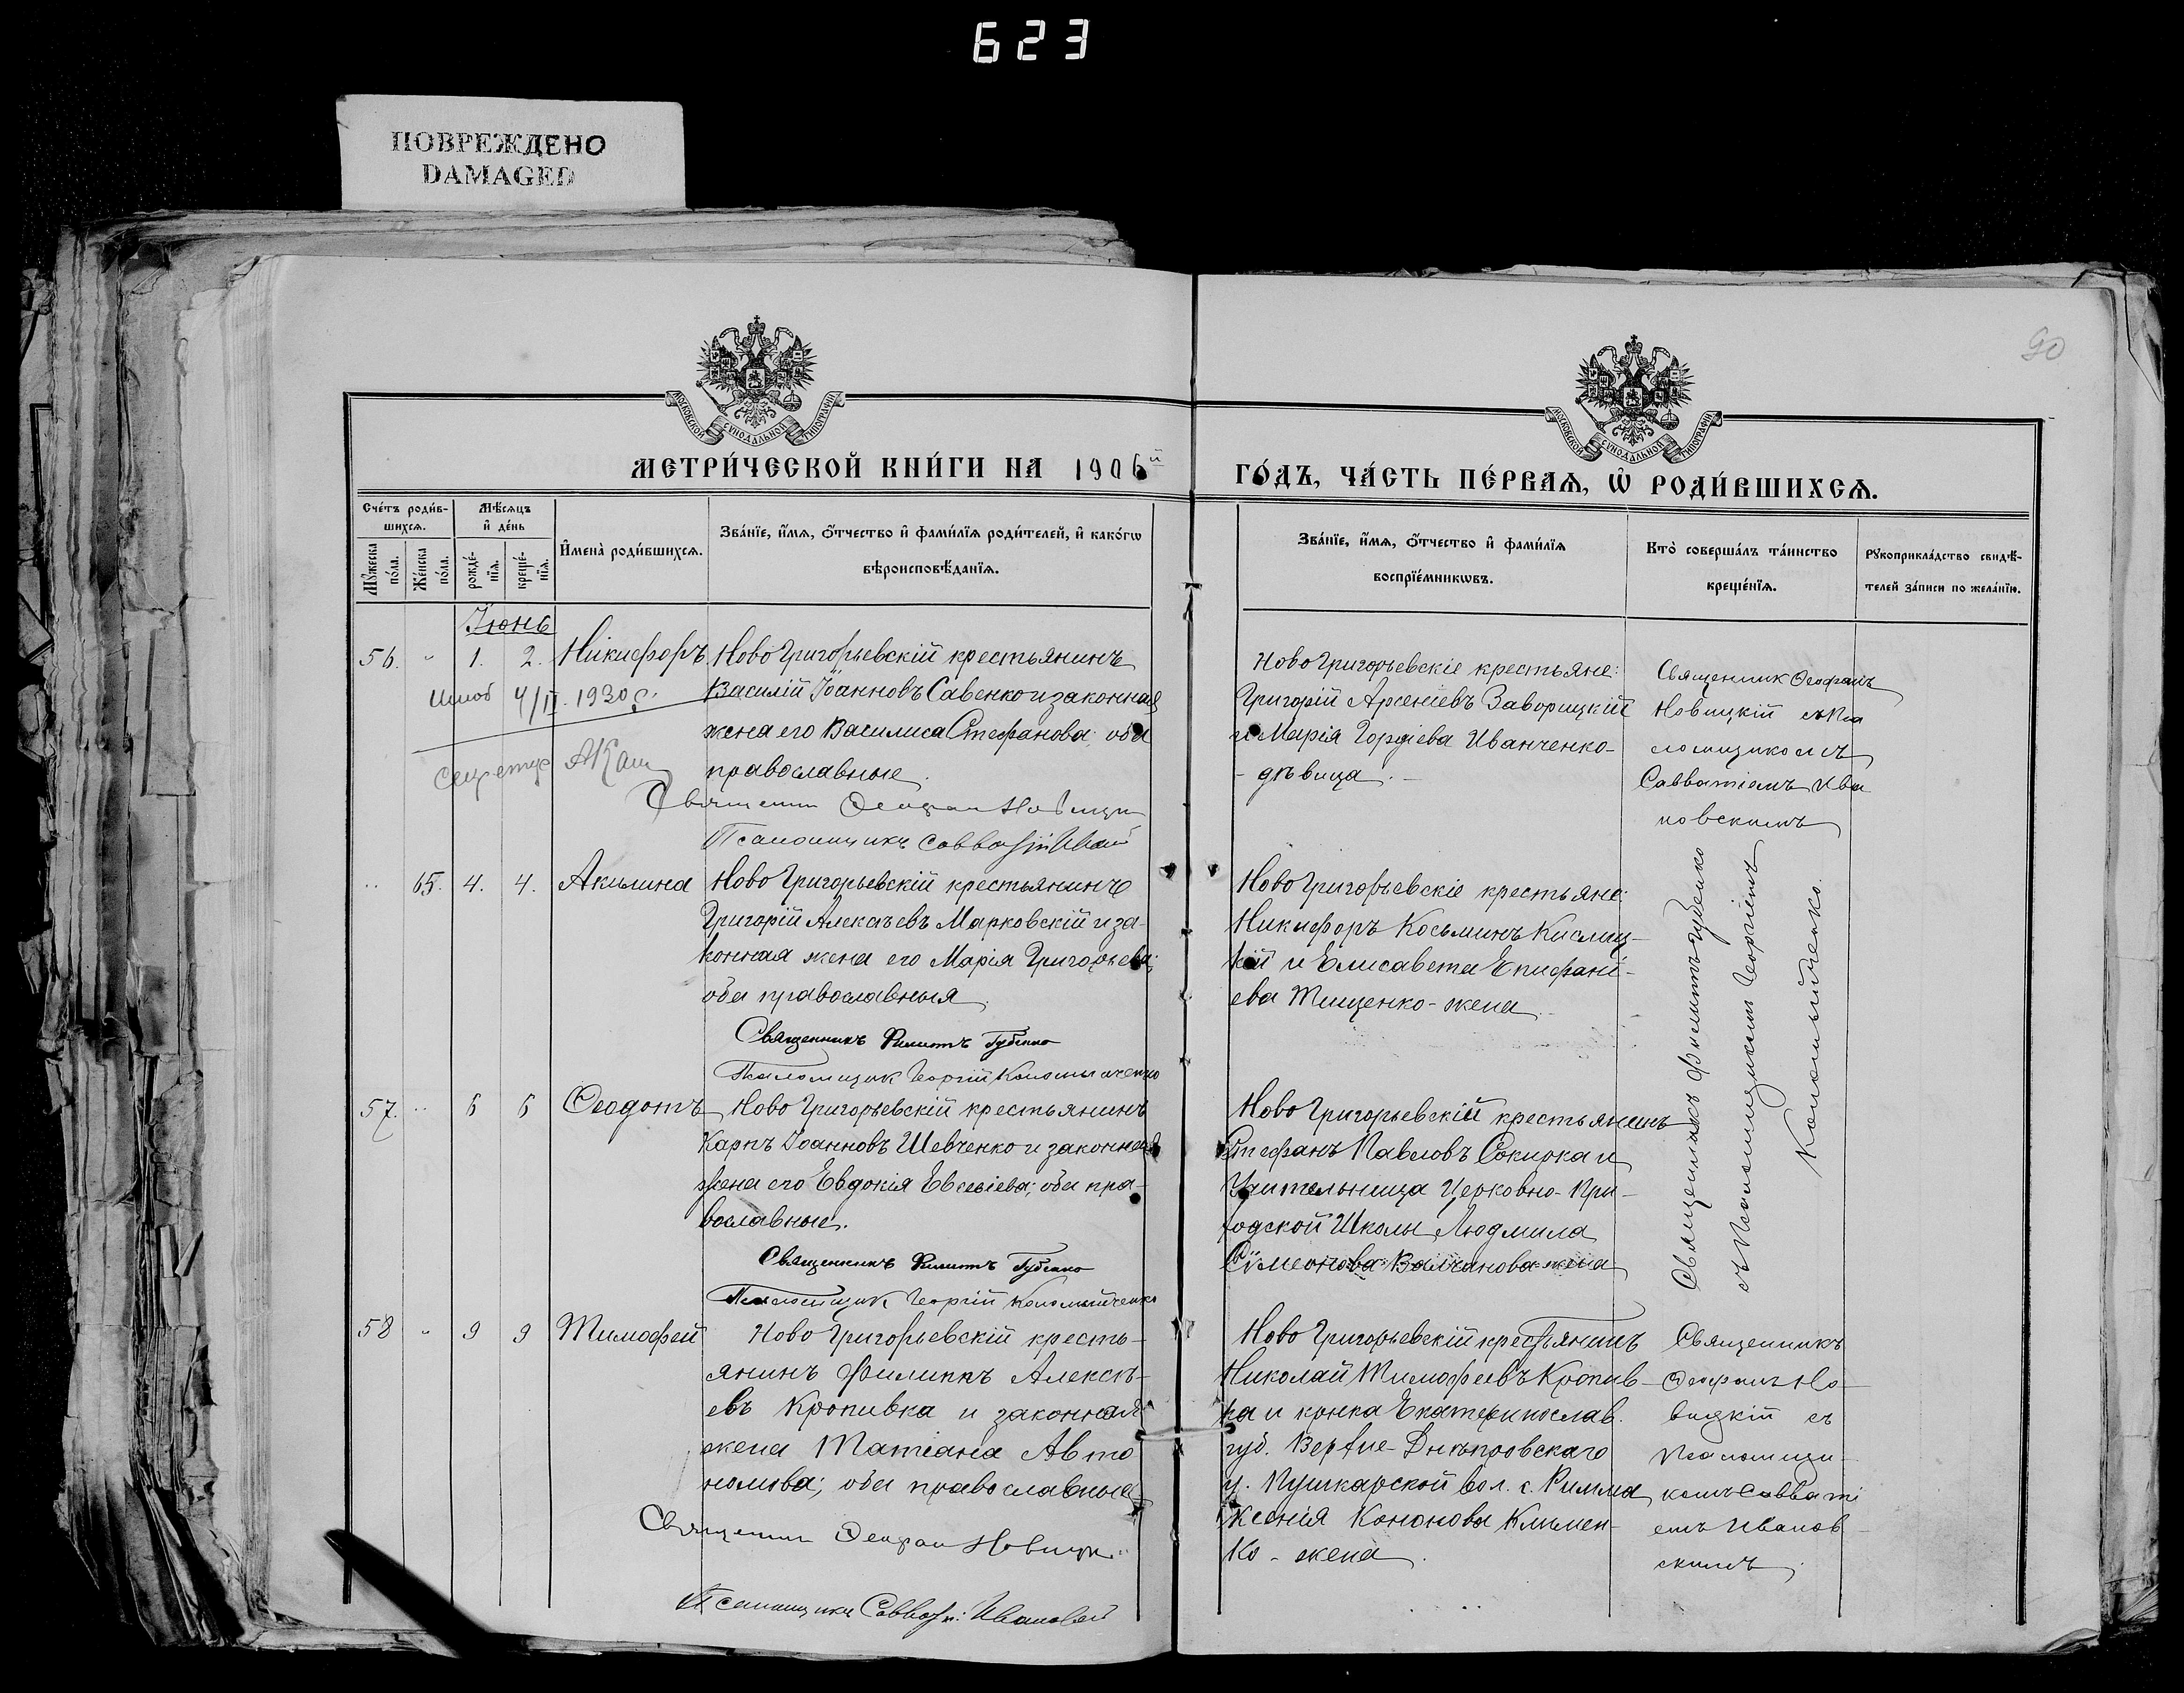 623
ПОВРЕЖДЕНО
DAMAGED
90
МОСКОВСКОЙ СѴНОДАЛЬНОЙ ТИПОГРАФІИ
МОСКОВСКОЙ СѴНОДАЛЬНОЙ ТИПОГРАФІИ
МЕТРИ́ЧЕСКОЙ КНИ́ГИ НА 1906й
ГО́ДЪ, ЧА́СТЬ ПЕ́РВАѦ, Ѡ҆ РОДИ́ВШИХСѦ.
Сче́тъ роди́в-
шихсѧ.
Мѹ́жеска по́ла.
Же́нска по́ла.
Мѣ́сѧцъ
и҆ де́нь
рожде́-
нїѧ.
креще́-
нїѧ.
И҆мена̀ роди́вшихсѧ.
Зва́нїе, и҆́мѧ, ѻ҆́тчество и҆ фами́лїѧ роди́телей, и҆ како́гѡ
вѣроисповѣ́данїѧ.
Зва́нїе, и҆́мѧ, ѻ҆́тчество и҆ фами́лїѧ
воспрїе́мникѡвъ.
Кто̀ соверша́лъ та́инство
креще́нїѧ.
Рѹкоприкла́дство свидѣ́-
телей за́писи по жела́нїю.
Іюнь
56. " 1. 2. Никифоръ
Ново Григорьевскій крестьянинъ
Василій Іоанновъ Савенко и законная
жена его Василиса Стефанова; оба
православные.
4/II. 1930 г.
Священник Ѳеофан Новицки
Псаломщикъ Савватій Иван
Ново Григорьевскіе крестьяне:
Григорій Арсеніевъ Заворицкій
и Марія Гордіева Иванченко-
- дѣвица. -
Священник Ѳеофанъ
Новицкій съ Пса
ломщикомъ
Савватіемъ Ива
новскимъ
" 65. 4. 4. Акилина
Ново Григорьевскій крестьянинъ
Григорій Алексѣевъ Марковскій и за-
конная жена его Марія Григорьева;
оба православныя
Священникъ Филиппъ Губенко
Псаломщик Георгій Коломыйченко
Ново Григорьевскіе крестьяне:
Никифоръ Косьминъ Кислиц-
кій и Елисавета Епифані-
ева Тищенко - жена.
Священникъ Филиппъ Губенко
съ Псаломщикомъ Георгіемъ
Коломыйченко.
57. " 6 6 Ѳеодотъ
Ново Григорьевскій крестьянинъ
Карпъ Іоанновъ Шевченко и законная
жена его Евдокія Евсевіева; оба пра-
вославные.
Священникъ Филиппъ Губенко
Псаломщик Георгій Коломыйченко
Ново Григорьевскій крестьянинъ
Стефанъ Павловъ Сокирка и
Учительница Церковно-При-
ходской Школы Людмила
Сѵмеонова Валчанова жена
58 " 9 9 Тимофей
Ново Григорьевскій кресть-
янинъ Филиппъ Алексѣ-
евъ Кропивка и законная
жена Татіана Авто
номова; оба православные
Священник Ѳеофан Новицки.
Псаломщикъ Савватій Ивановскій
Ново Григорьевскій крестьянинъ
Николай Тимофеевъ Кропив-
ка и Екатеринослав.
губ. Верхне-Днѣпровскаго
у. Пушкарской вол. с.
Ксенія Кононова Климен-
ко - жена.
Священникъ
Ѳеофанъ Но-
вицкій съ
Псаломщи-
комъ Савваті
емъ Иванов-
скимъ.